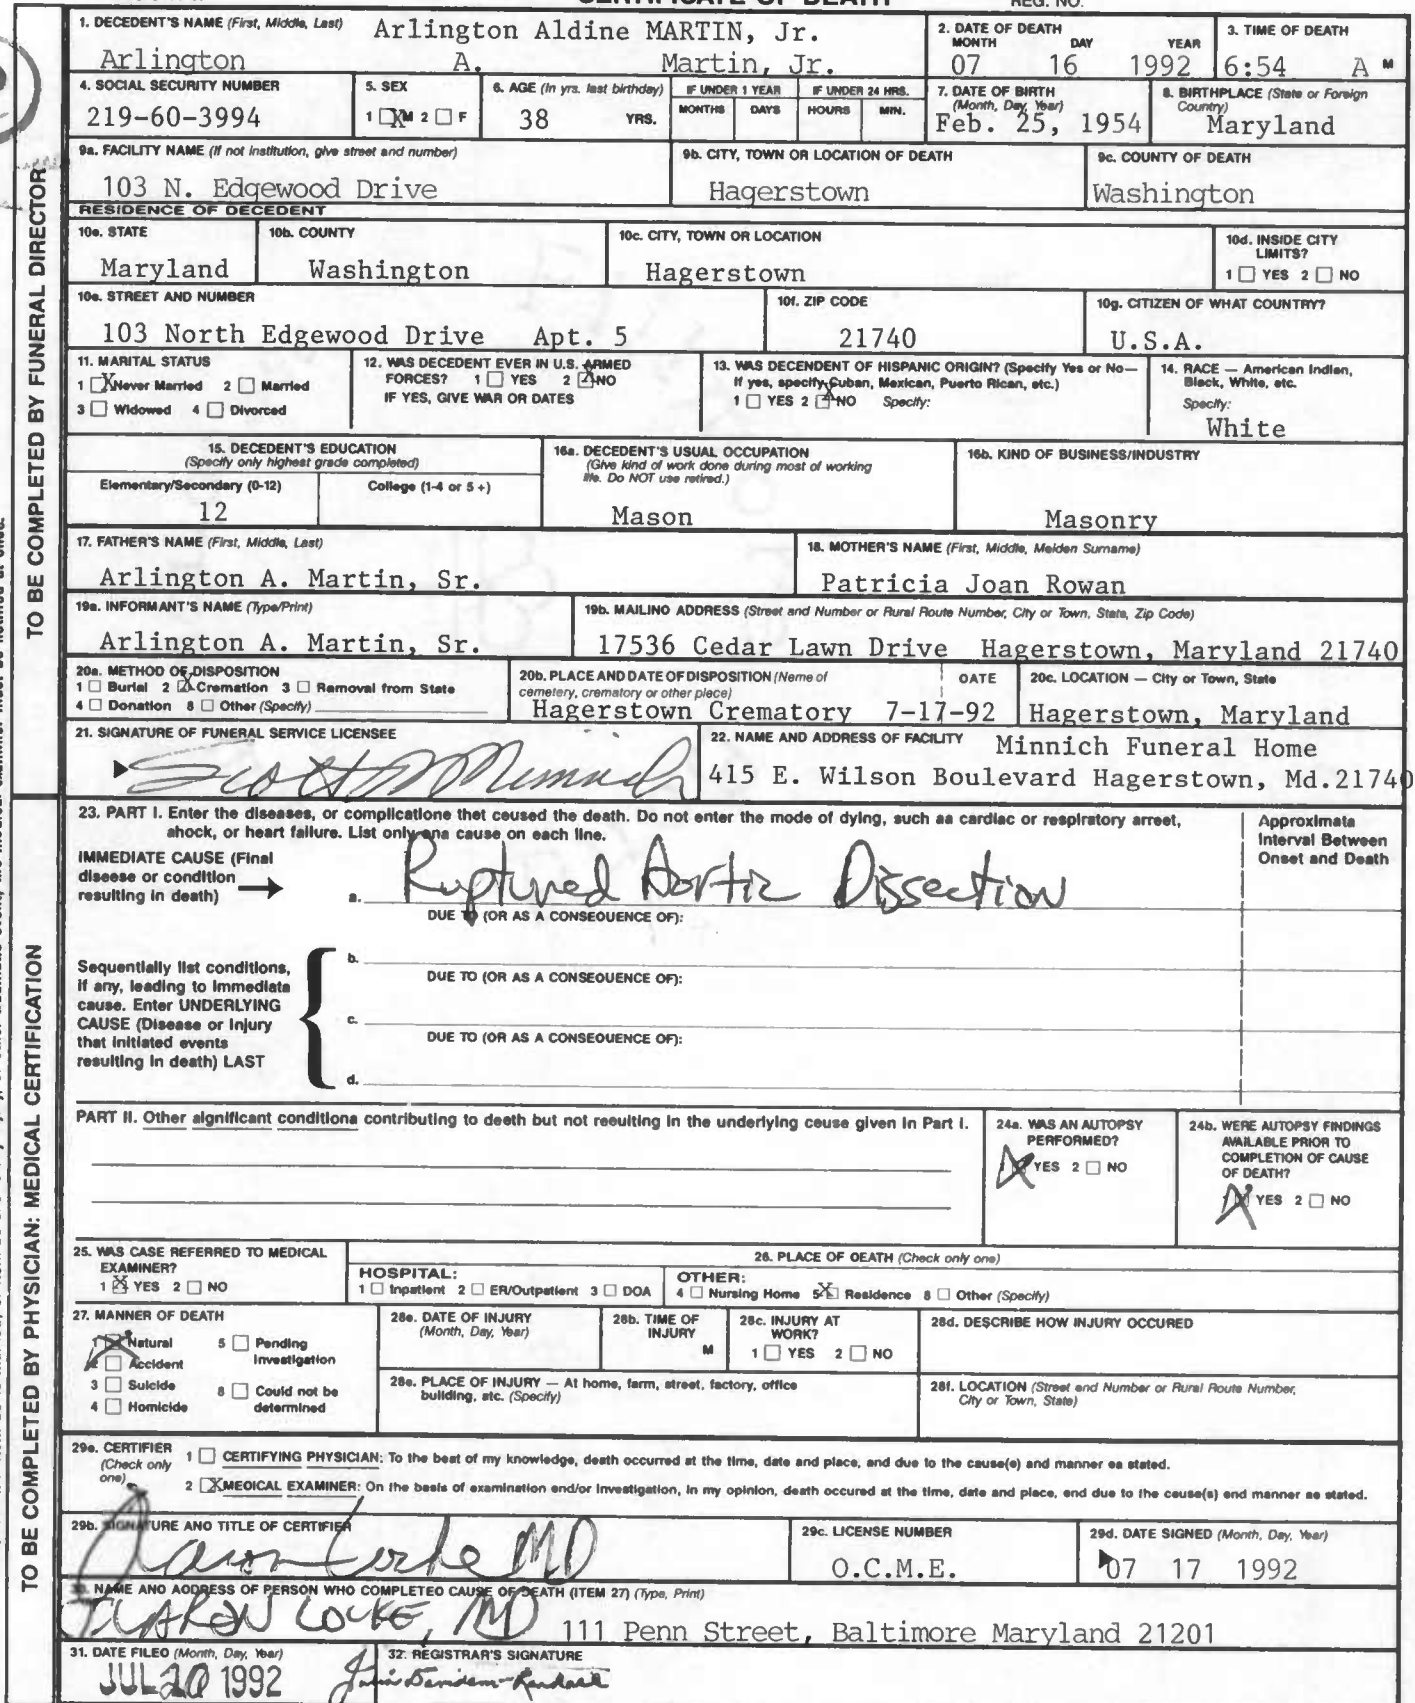 CERTIFICATE OF DEATH
REG. NO.
1. DECEDENT'S NAME (First, Middle, Last) Arlington Aldine MARTIN, Jr.
Arlington A. Martin, Jr.
2. DATE OF DEATH
MONTH DAY YEAR
07 16 1992
3. TIME OF DEATH
6:54 A M
4. SOCIAL SECURITY NUMBER
219-60-3994
5. SEX
1 X M 2 ☐ F
6. AGE (In yrs. last birthday)
38 YRS.
IF UNDER 1 YEAR
MONTHS DAYS
IF UNDER 24 HRS.
HOURS MIN.
7. DATE OF BIRTH
(Month, Day, Year)
Feb. 25, 1954
8. BIRTHPLACE (State or Foreign
Country)
Maryland
9a. FACILITY NAME (If not institution, give street and number)
103 N. Edgewood Drive
9b. CITY, TOWN OR LOCATION OF DEATH
Hagerstown
9c. COUNTY OF DEATH
Washington
RESIDENCE OF DECEDENT
10a. STATE
Maryland
10b. COUNTY
Washington
10c. CITY, TOWN OR LOCATION
Hagerstown
10d. INSIDE CITY
LIMITS?
1 ☐ YES 2 ☐ NO
10e. STREET AND NUMBER
103 North Edgewood Drive Apt. 5
10f. ZIP CODE
21740
10g. CITIZEN OF WHAT COUNTRY?
U.S.A.
11. MARITAL STATUS
1 X Never Married 2 ☐ Married
3 ☐ Widowed 4 ☐ Divorced
12. WAS DECEDENT EVER IN U.S. ARMED
FORCES? 1 ☐ YES 2 X NO
IF YES, GIVE WAR OR DATES
13. WAS DECENDENT OF HISPANIC ORIGIN? (Specify Yes or No—
If yes, specify Cuban, Mexican, Puerto Rican, etc.)
1 ☐ YES 2 X NO Specify:
14. RACE — American Indian,
Black, White, etc.
Specify:
White
15. DECEDENT'S EDUCATION
(Specify only highest grade completed)
Elementary/Secondary (0-12) College (1-4 or 5 +)
12
16a. DECEDENT'S USUAL OCCUPATION
(Give kind of work done during most of working
life. Do NOT use retired.)
Mason
16b. KIND OF BUSINESS/INDUSTRY
Masonry
17. FATHER'S NAME (First, Middle, Last)
Arlington A. Martin, Sr.
18. MOTHER'S NAME (First, Middle, Maiden Surname)
Patricia Joan Rowan
19a. INFORMANT'S NAME (Type/Print)
Arlington A. Martin, Sr.
19b. MAILING ADDRESS (Street and Number or Rural Route Number, City or Town, State, Zip Code)
17536 Cedar Lawn Drive Hagerstown, Maryland 21740
20a. METHOD OF DISPOSITION
1 ☐ Burial 2 X Cremation 3 ☐ Removal from State
4 ☐ Donation 8 ☐ Other (Specify)
20b. PLACE AND DATE OF DISPOSITION (Name of DATE
cemetery, crematory or other place)
Hagerstown Crematory 7-17-92
20c. LOCATION — City or Town, State
Hagerstown, Maryland
21. SIGNATURE OF FUNERAL SERVICE LICENSEE
Scott M Minnich
22. NAME AND ADDRESS OF FACILITY Minnich Funeral Home
415 E. Wilson Boulevard Hagerstown, Md.21740
TO BE COMPLETED BY FUNERAL DIRECTOR
23. PART I. Enter the diseases, or complications that caused the death. Do not enter the mode of dying, such as cardiac or respiratory arrest,
shock, or heart failure. List only one cause on each line.
Approximate
Interval Between
Onset and Death
IMMEDIATE CAUSE (Final
disease or condition
resulting in death)
a. Ruptured Aortic Dissection
DUE TO (OR AS A CONSEQUENCE OF):
Sequentially list conditions,
if any, leading to immediate
cause. Enter UNDERLYING
CAUSE (Disease or injury
that initiated events
resulting in death) LAST
b.
DUE TO (OR AS A CONSEQUENCE OF):
c.
DUE TO (OR AS A CONSEQUENCE OF):
d.
PART II. Other significant conditions contributing to death but not resulting in the underlying cause given in Part I.
24a. WAS AN AUTOPSY
PERFORMED?
1 X YES 2 ☐ NO
24b. WERE AUTOPSY FINDINGS
AVAILABLE PRIOR TO
COMPLETION OF CAUSE
OF DEATH?
1 X YES 2 ☐ NO
25. WAS CASE REFERRED TO MEDICAL
EXAMINER?
1 X YES 2 ☐ NO
26. PLACE OF DEATH (Check only one)
HOSPITAL:
1 ☐ Inpatient 2 ☐ ER/Outpatient 3 ☐ DOA
OTHER:
4 ☐ Nursing Home 5 X Residence 8 ☐ Other (Specify)
27. MANNER OF DEATH
1 X Natural 5 ☐ Pending
Investigation
2 ☐ Accident
3 ☐ Suicide 8 ☐ Could not be
determined
4 ☐ Homicide
28a. DATE OF INJURY
(Month, Day, Year)
28b. TIME OF
INJURY
M
28c. INJURY AT
WORK?
1 ☐ YES 2 ☐ NO
28d. DESCRIBE HOW INJURY OCCURED
28e. PLACE OF INJURY — At home, farm, street, factory, office
building, etc. (Specify)
28f. LOCATION (Street and Number or Rural Route Number,
City or Town, State)
29a. CERTIFIER
(Check only
one)
1 ☐ CERTIFYING PHYSICIAN: To the best of my knowledge, death occurred at the time, date and place, and due to the cause(s) and manner as stated.
2 X MEDICAL EXAMINER: On the basis of examination and/or investigation, in my opinion, death occured at the time, date and place, and due to the cause(s) and manner as stated.
29b. SIGNATURE AND TITLE OF CERTIFIER
Laron Locke MD
29c. LICENSE NUMBER
O.C.M.E.
29d. DATE SIGNED (Month, Day, Year)
07 17 1992
30. NAME AND ADDRESS OF PERSON WHO COMPLETED CAUSE OF DEATH (ITEM 27) (Type, Print)
LARON LOCKE, MD 111 Penn Street, Baltimore Maryland 21201
31. DATE FILED (Month, Day, Year)
JUL 20 1992
32. REGISTRAR'S SIGNATURE
TO BE COMPLETED BY PHYSICIAN: MEDICAL CERTIFICATION